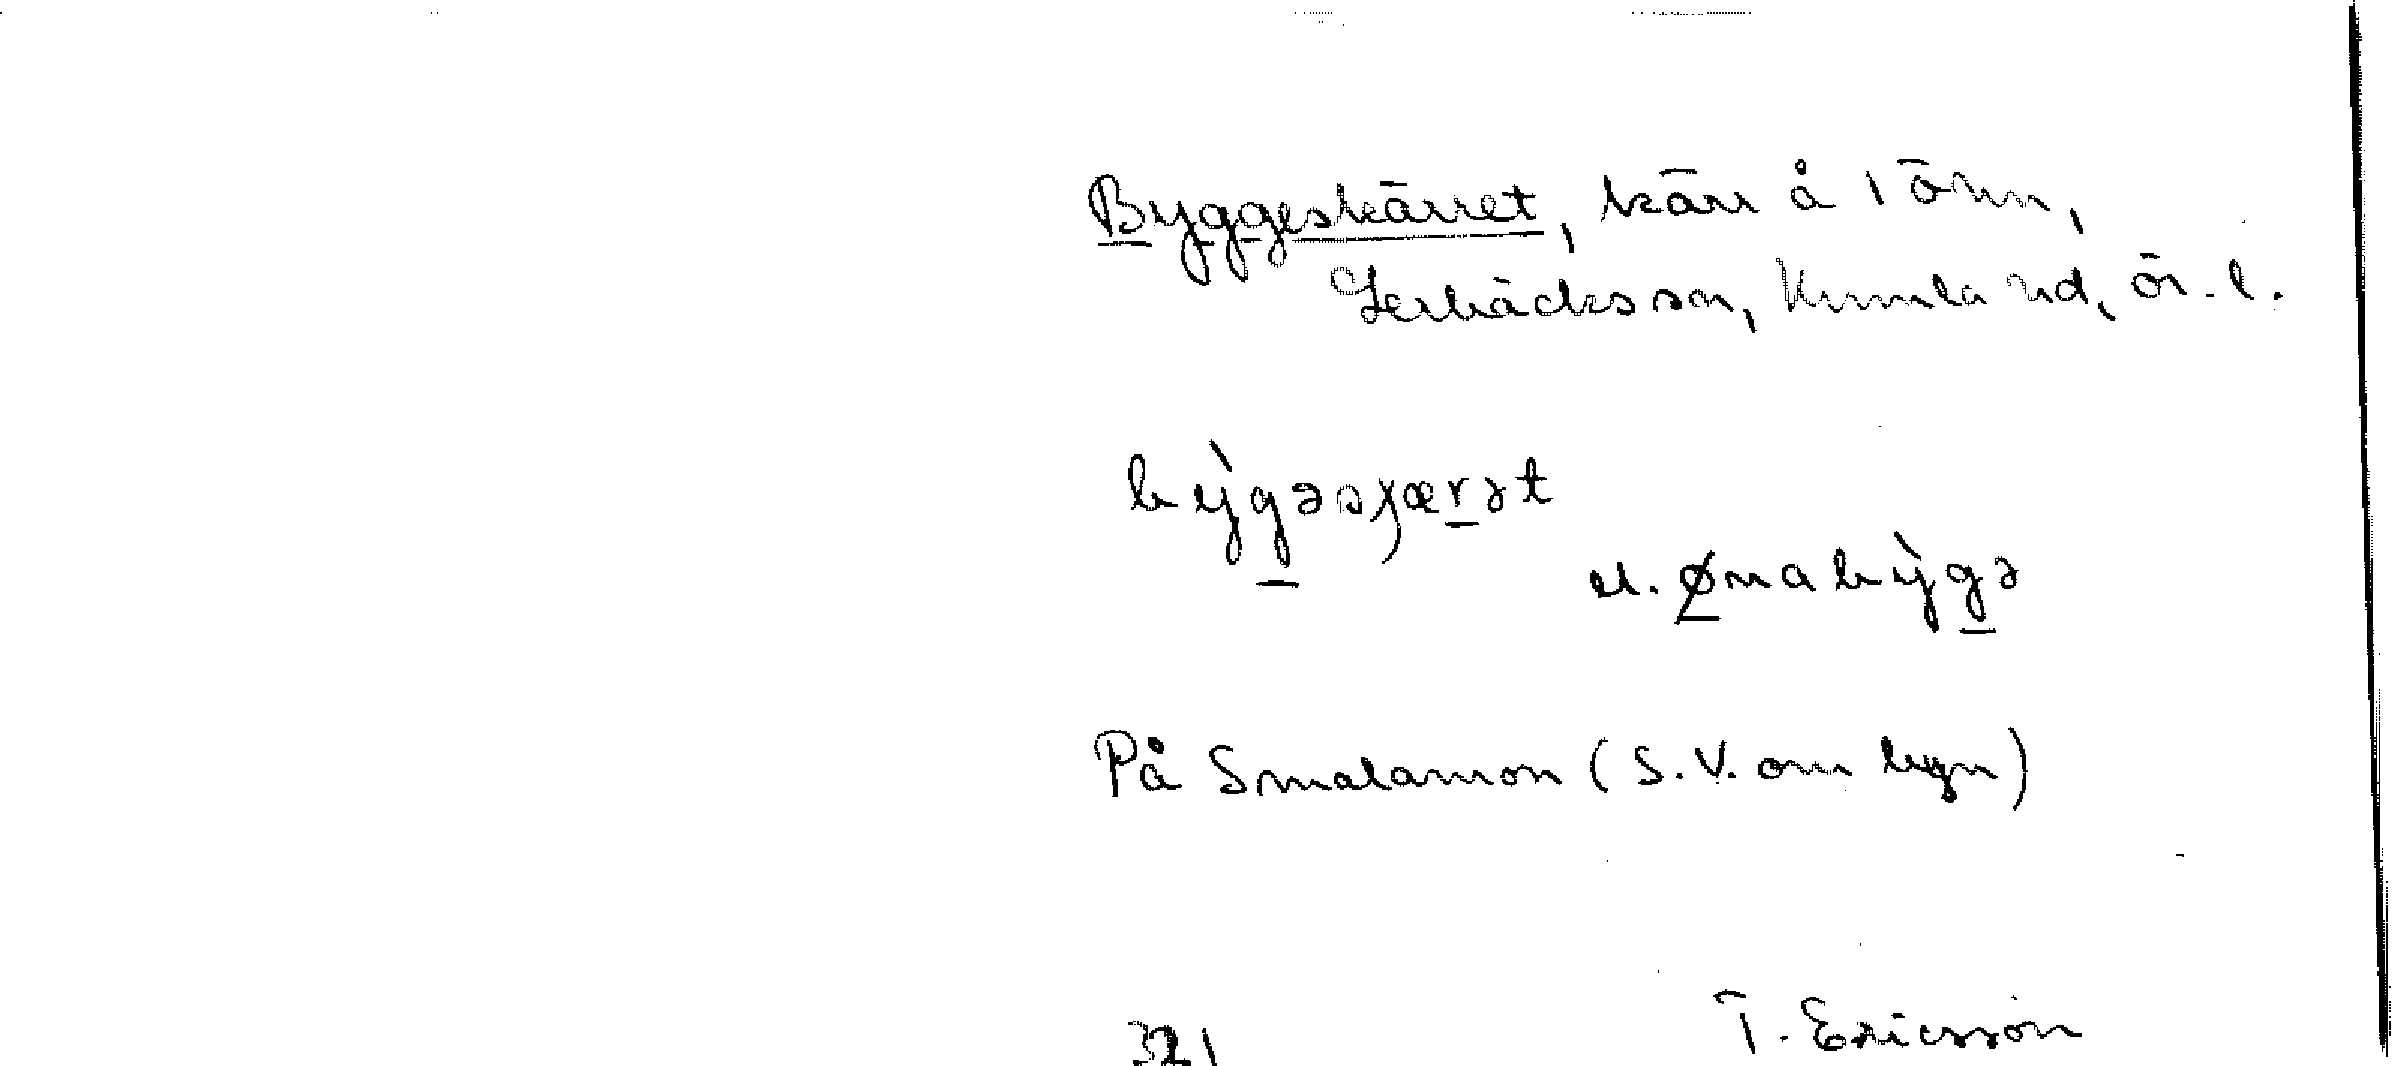 Byggeskärret, kärr å Törn,
Lerbäcks sn, Kumla hd, Ör. l.
bỳgəsɟærət
el. ømabỳgə
På Smalamon (S.V. om byn)
321 T. Ericsson